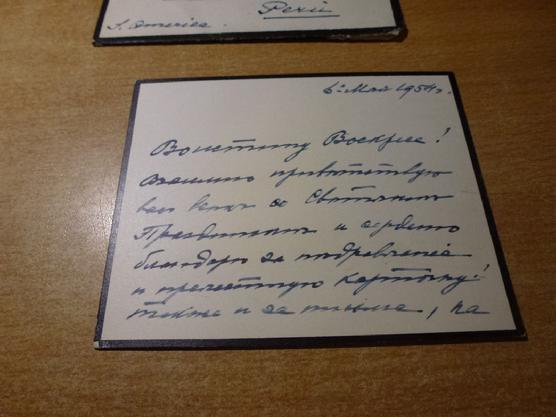 Perú
S. America.
6го Май 1954 г.
Воистину Воскресе!
взаимно приветствую
вас всех со Светлым
Праздником и сердечно
благодарю за поздравления
и прелестную карточку!
также и за письма, на